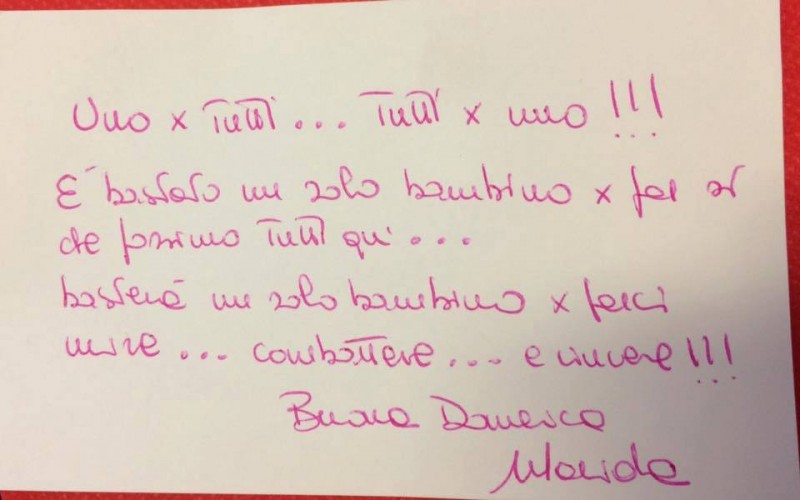 Uno x Tutti ... Tutti x uno !!!
E' bastato un solo bambino x far sì
che fossimo tutti qui ...
basterà un solo bambino x farci
unire ... combattere ... e vincere !!!
Buona Domenica